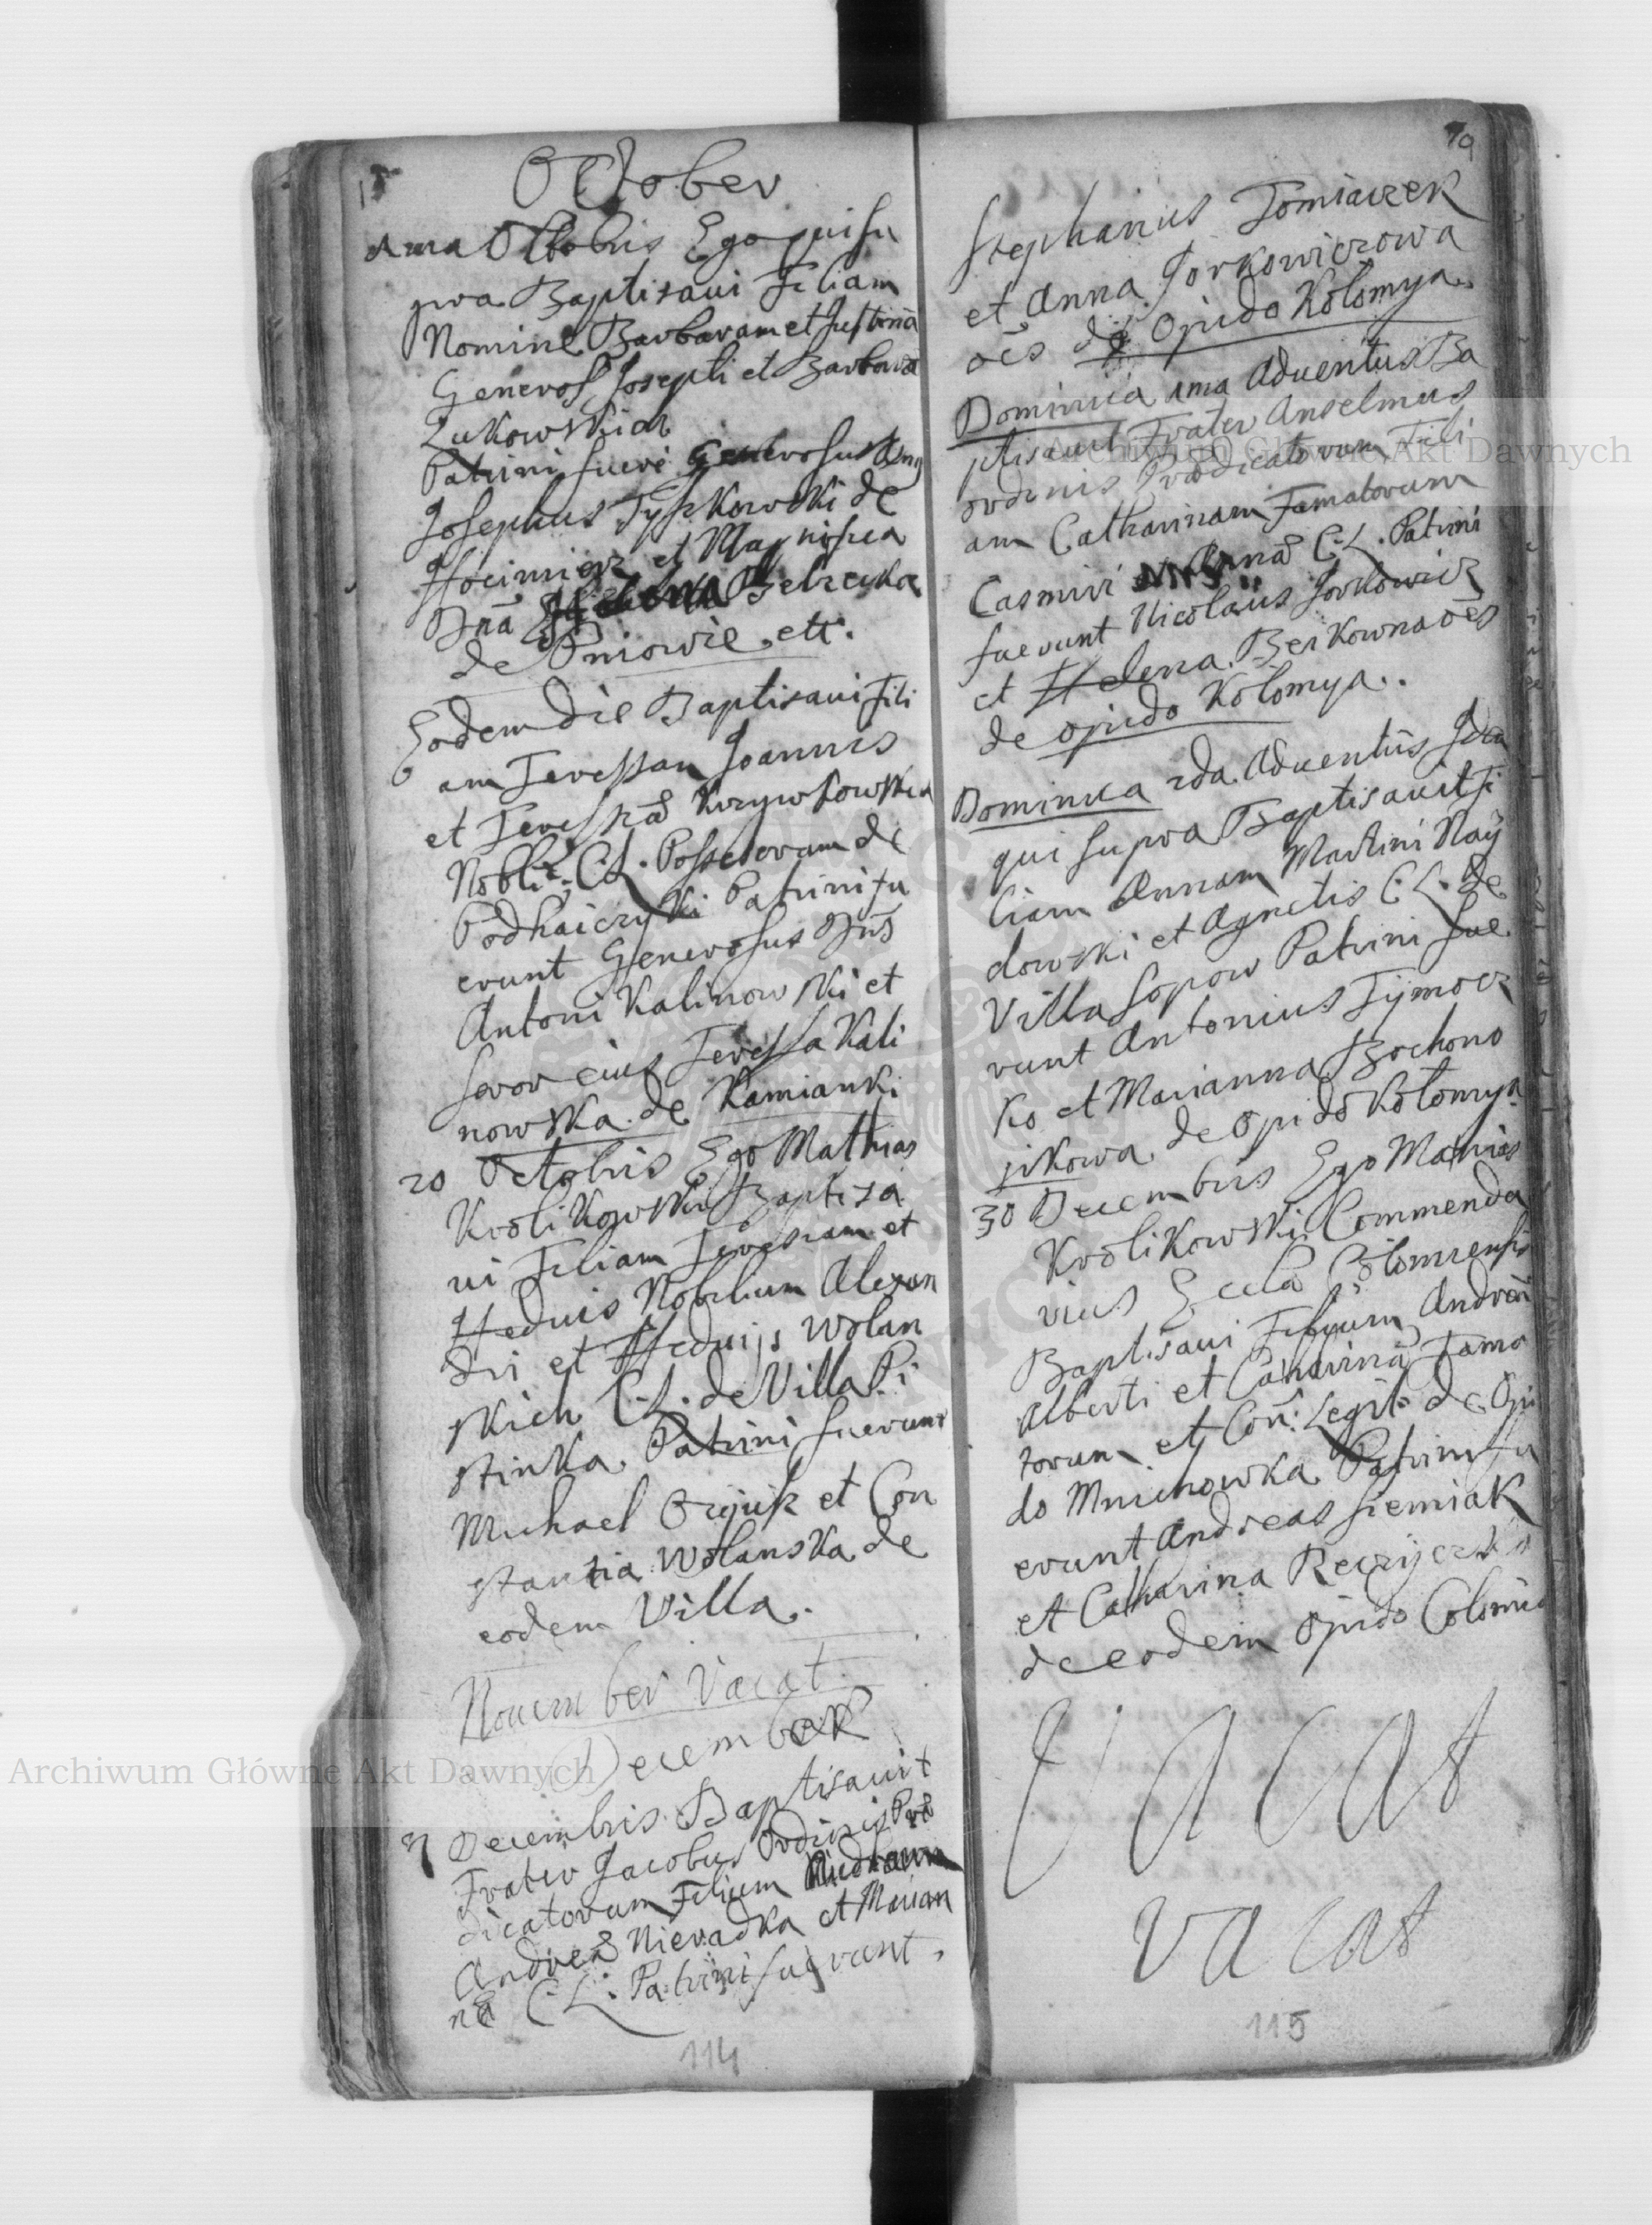 October
Octobris Ego qui su
pra Baptisaui Filiam
Nomine Barbaram et Justinã
Generos Josephi et Barbara
Zukowskich
Patrini fuere Generosus
Josephus Tyszkowski de
Hocimierz et Magnifica
Dnã Belzecka
de Pniowie. ett.
Eodem die Baptisaui Fili
am Teressan Joannis
et Teressæ Krzywkowskich
Nobli: C.L. Possessorum de
Podhaiczyki Patrini fu
erunt Generosus Dns
Antoni Kalinowski et
soror eius Teressa Kali
nowska de Kamianki
20 Octobris Ego Mathias
Krolikowski Baptiza
ui Filiam Teressam et
Heduis Nobilium Alexan
dri et Heduijs Wolan
skich C.L. de Villa Pi
stinka. Patrini fuerunt
Michael et Con
stantia Wolanska de
eodem Villa.
Nouember Vacat
December
Decembris Baptisauit
Frater Jacobus Ordinis Præ
dicatorum Filium
Andreæ Nieradka et Marian
næ C.L: Patrini fuerunt.
114
79
Stephanus Tomiaczek
et Anna Jorkowiczowa
oẽs de Opido Kołomya.
Dominica 1ma Aduentus Ba
ptisauit Frater Anselmus
ordinis Prædicatorum Fili
am Catharinam Famatorum
Casmiri Annæ C.L. Patrini
fuerunt Nicolaus Jorkowicz
et Helena Berkowna oẽs
de opido Kołomya..
Dominica 2da Aduentus Idem
qui supra Baptisauit Fi
liam Annam Martini Nay
dowski et Agnetis C.L. de
Villa Sopow Patrini fue
runt Antonius Tymocz
ko et Marianna Bochono
sikowa de Opido Kołomya
30 Decembris Ego Mathias
Krolikowski Commenda
rius Eccla Colomiensis
Baptisaui Filium Andreã
Alberti et Catharinæ Famo
torum et Con: Legit: de Opi
do Mnichowka Patrini fu
erunt Andreas Siemiak
et Catharina
de eodem Opido Colomia
Vacat
vacat
115
Archiwum Główne Akt Dawnych
Archiwum Główne Akt Dawnych